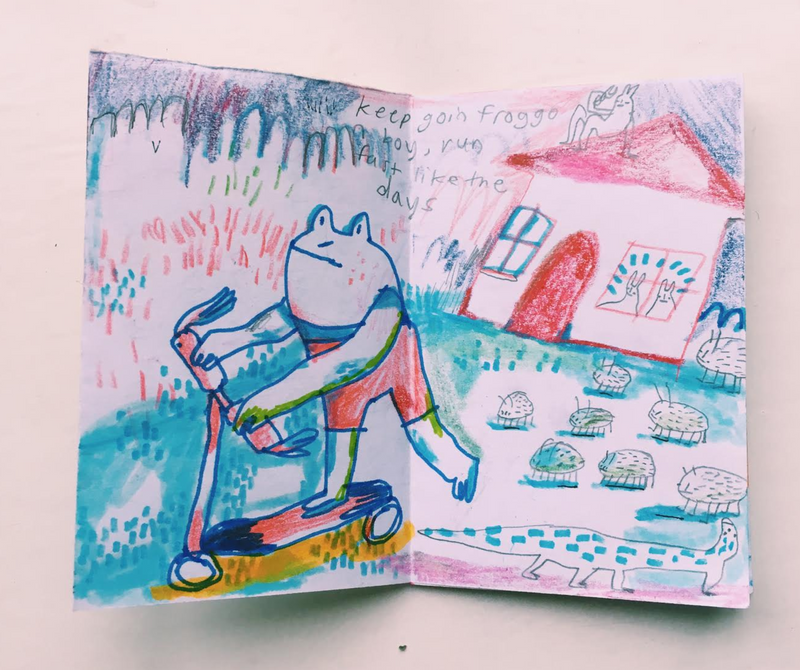 keep goin froggo
boy, run
fast like the
days